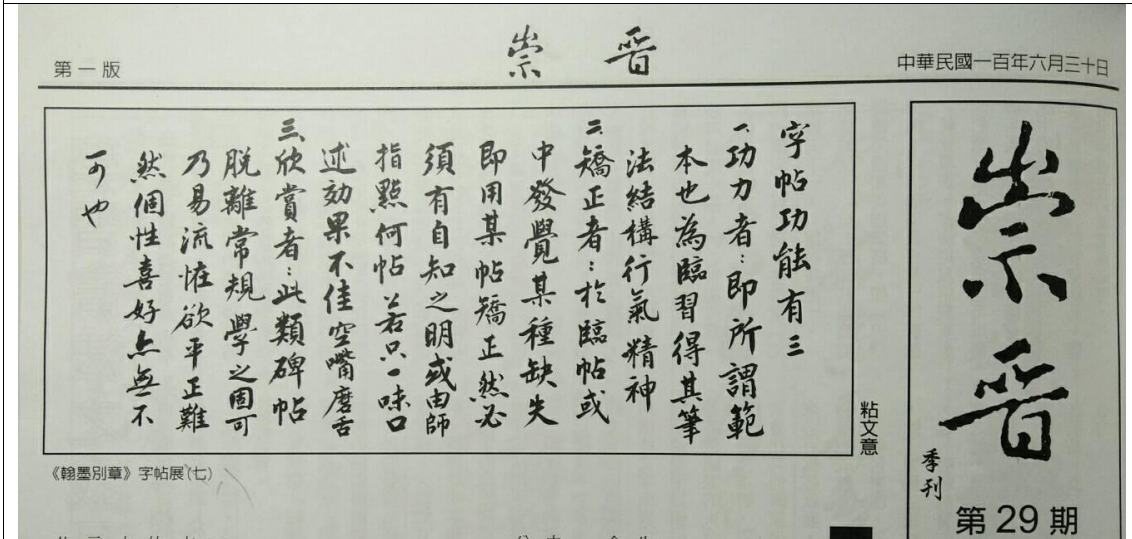 第一版
崇晉
中華民國一百年六月三十日
字帖功能有三
一、功力者：即所謂範
本也為臨習得其筆
法結構行氣精神
二、矯正者：於臨帖或
中發覺某種缺失
即用某帖矯正然必
須有自知之明或由師
指點何帖若只一味口
述効果不佳空嘴磨舌
三、欣賞者：此類碑帖
脫離常規學之固可
乃易流怪欲平正難
然個性喜好亦無不
可也
粘文意
《翰墨別章》字帖展(七)
崇晉
季刊
第29期